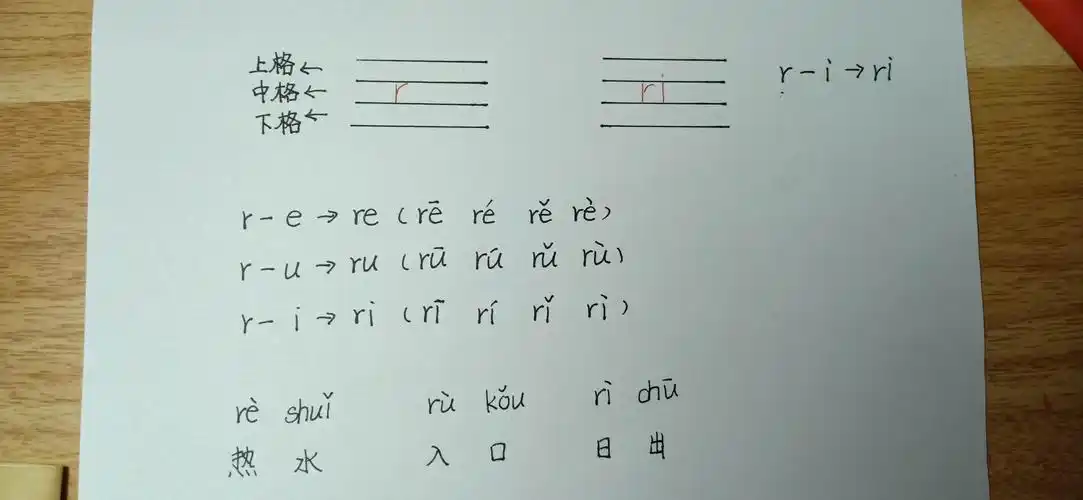 上格← r ri r-i→ri
中格←
下格←
r-e→re(rē ré rě rè)
r-u→ru(rū rú rǔ rù)
r-i→ri(rī rí rǐ rì)
rè shuǐ rù kǒu rì chū
热水 入口 日出